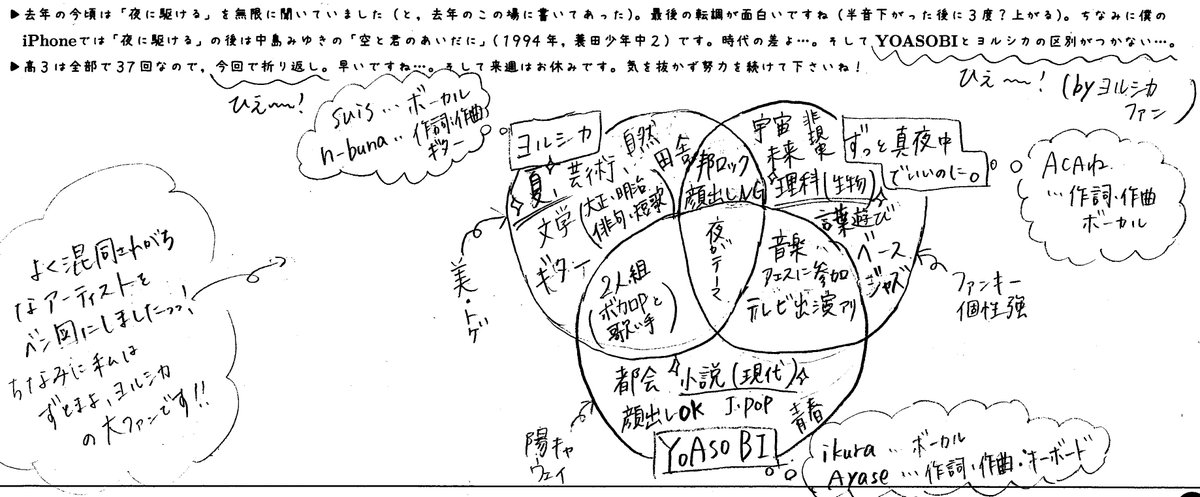 ▶去年の今頃は「夜に駆ける」を無限に聞いていました（と，去年のこの場に書いてあった）。最後の転調が面白いですね（半音下がった後に３度？上がる）。ちなみに僕の
iPhoneでは「夜に駆ける」の後は中島みゆきの「空と君のあいだに」（1994年，蓑田少年中２）です。時代の差よ…。そしてYOASOBIとヨルシカの区別がつかない…。
▶高３は全部で37回なので，今回で折り返し。早いですね…。そして来週はお休みです。気を抜かず努力を続けて下さいね！
ひぇ〜〜！
ひぇ〜〜！
(byヨルシカ
ファン)
suis…ボーカル
n-buna…作詞・作曲
ギター
ヨルシカ
夏
芸術
自然
田舎
文学
(大正・明治
俳句・短歌)
ギター
美・トゲ
邦ロック
顔出しNG
宇宙
非現実
未来
理科(生物)
言葉遊び
ベース
ジャズ
ずっと真夜中
でいいのに。
ACAね
…作詞・作曲
ボーカル
ファンキー
個性強
夜がテーマ
2人組
(ボカロPと
歌い手)
音楽
フェスに参加
テレビ出演アリ
都会
小説(現代)
顔出しOK
J-POP
青春
陽キャ
ウェイ
YOASOBI
ikura…ボーカル
Ayase…作詞・作曲・キーボード
よく混同されがち
なアーティストを
ベン図にしましたっっ!
ちなみに私は
ずとまよ、ヨルシカ
の大ファンです!!